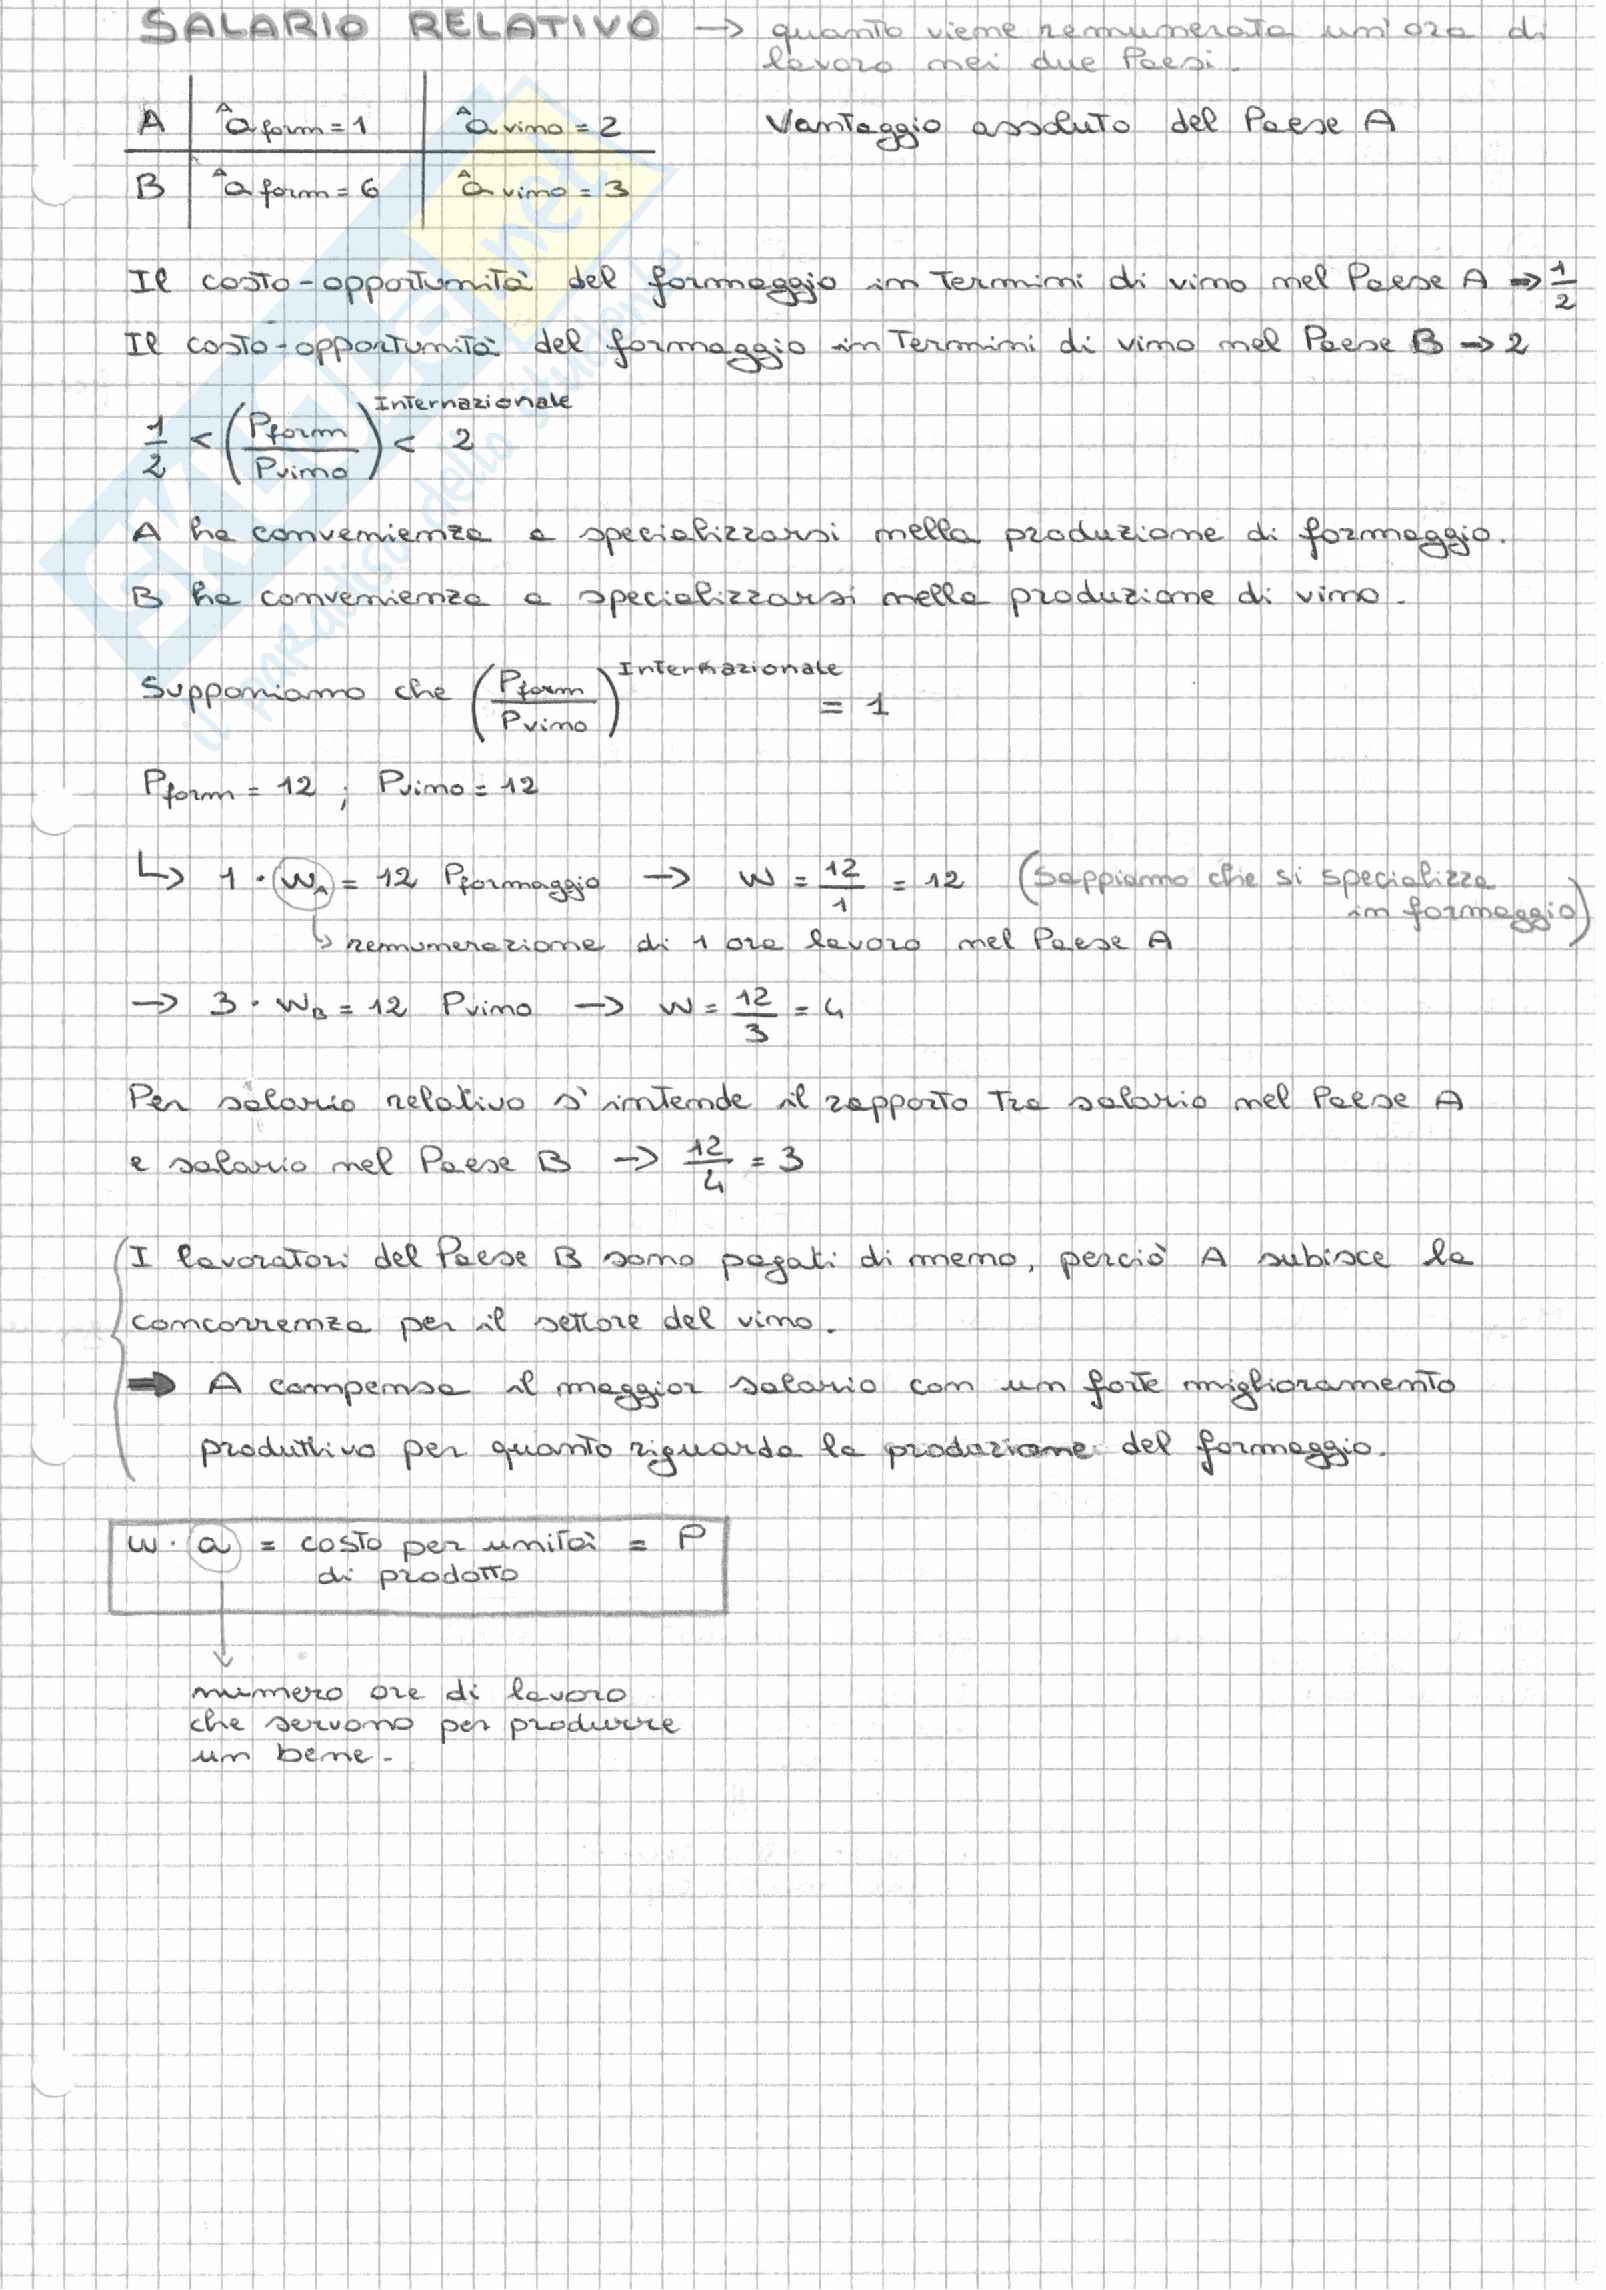 SALARIO RELATIVO → quanto viene remunerata un'ora di
lavoro nei due Paesi.
A | â form = 1 | â vino = 2 Vantaggio assoluto del Paese A
B | â form = 6 | â vino = 3
Il costo-opportunità del formaggio in termini di vino nel Paese A → 1/2
Il costo-opportunità del formaggio in termini di vino nel Paese B → 2
1/2 < (Pform/Pvino)^Internazionale < 2
A ha convenienza a specializzarsi nella produzione di formaggio.
B ha convenienza a specializzarsi nella produzione di vino.
Supponiamo che (Pform/Pvino)^Internazionale = 1
Pform = 12 ; Pvino = 12
↳ 1 · WA = 12 Pformaggio → W = 12/1 = 12 (Sappiamo che si specializza
in formaggio)
↳ remunerazione di 1 ora lavoro nel Paese A
→ 3 · WB = 12 Pvino → W = 12/3 = 4
Per salario relativo s'intende il rapporto tra salario nel Paese A
e salario nel Paese B → 12/4 = 3
I lavoratori del Paese B sono pagati di meno, perciò A subisce la
concorrenza per il settore del vino.
⇒ A compensa il maggior salario con un forte miglioramento
produttivo per quanto riguarda la produzione del formaggio.
w · a = costo per unità = P
di prodotto
numero ore di lavoro
che servono per produrre
un bene.
SKUOLA.net
il paradiso dello studente